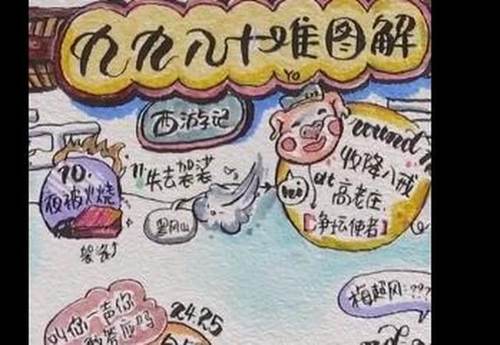 九九八十难图解
西游记
10.
夜被火烧
袈裟
11.
失去袈裟
黑风山
YO
round
收降八戒
at
高老庄
[净坛使者]
梅超风:???
叫你一声你
敢答应吗
24.25